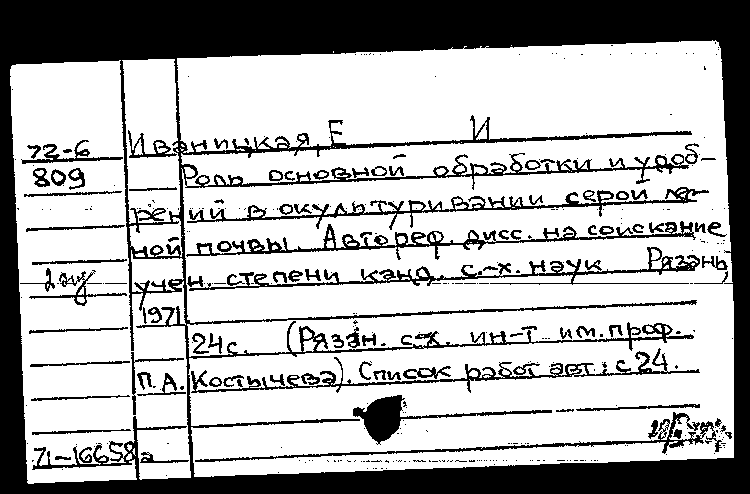 72-6 Иваницкая, Е И
809 Роль основной обработки и удоб-
рений в окультуривании серой лес-
ной почвы. Автореф. дисс. на соискание
2 учен. степени канд. с.-х. наук Рязань,
1971
24с. (Рязан. с-х. ин-т им. проф.
П.А. Костычева). Список работ авт: с 24.
71-16658а